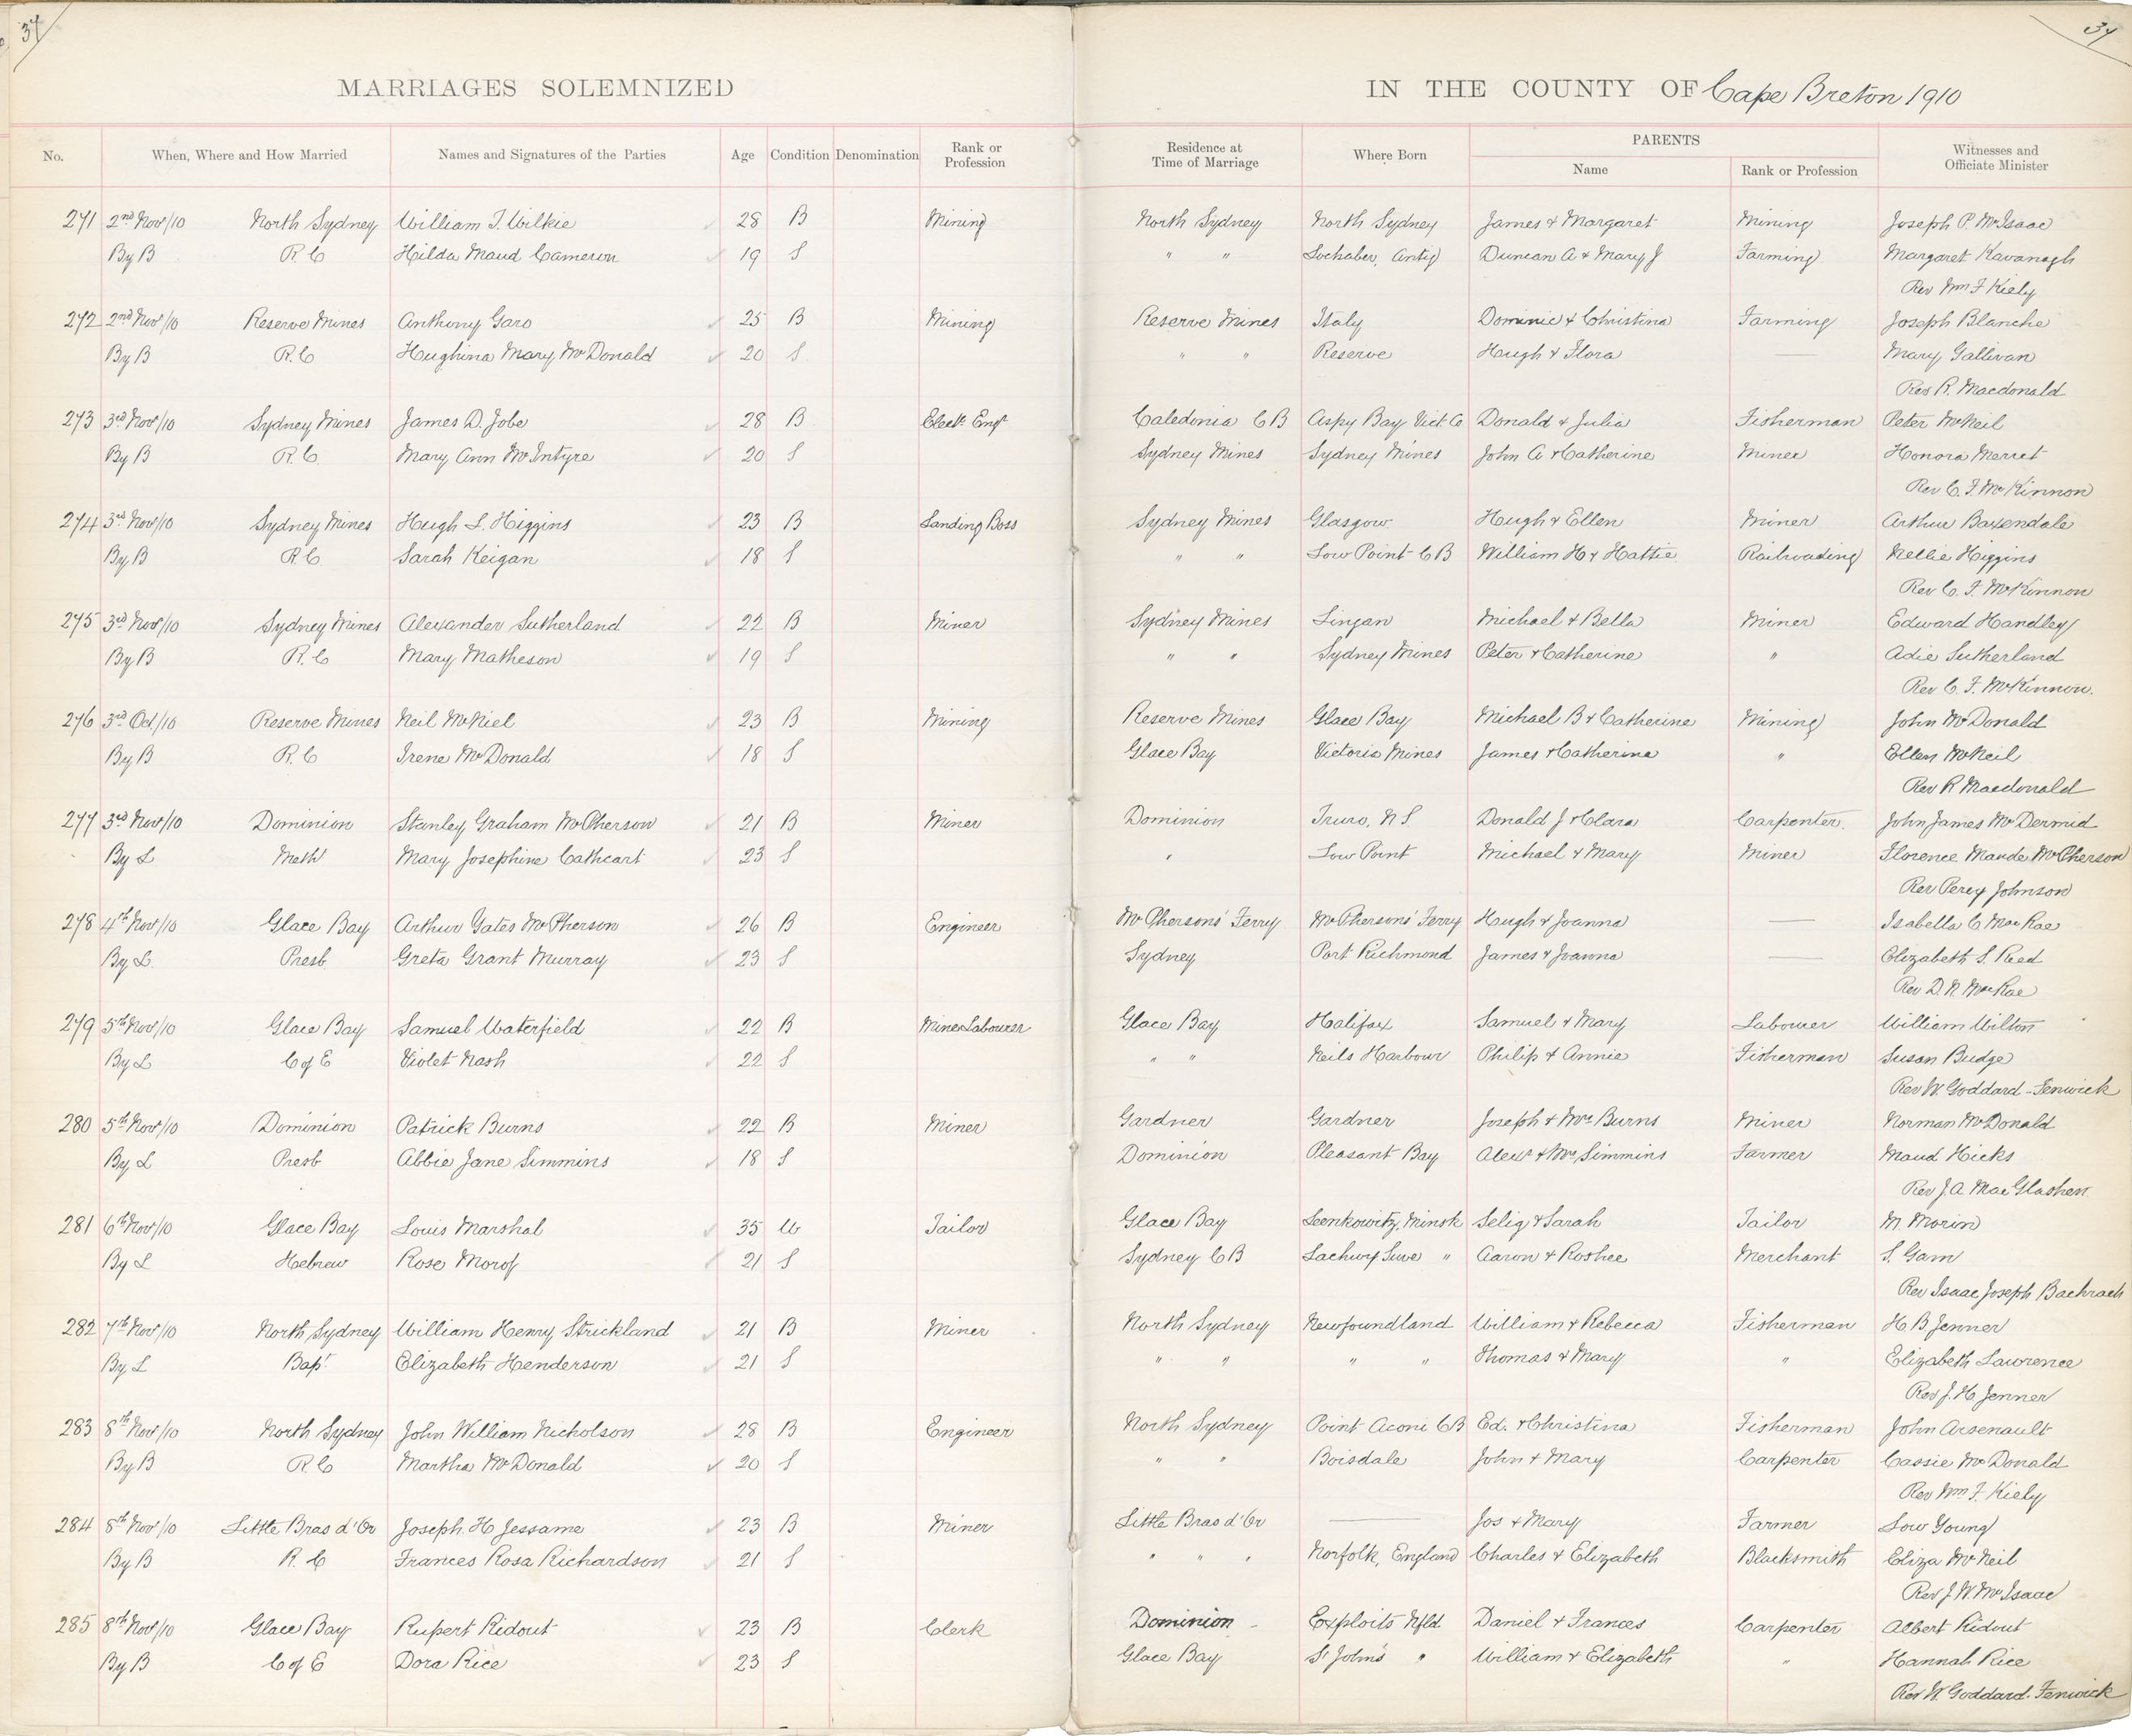 37
37
MARRIAGES SOLEMNIZED
IN THE COUNTY OF Cape Breton 1910
No. When, Where and How Married Names and Signatures of the Parties Age Condition Denomination Rank or Profession Residence at Time of Marriage Where Born PARENTS Name Rank or Profession Witnesses and Officiate Minister
271 2nd Nov/10 North Sydney William J. Wilkie 28 B Mining North Sydney North Sydney James & Margaret Mining Joseph P. McIsaac
By B R.C Hilda Maud Cameron 19 S " " Lochaber, Antig Duncan A & Mary J Farming Margaret Kavanagh
Rev Wm F Kiely
272 2nd Nov/10 Reserve Mines Anthony Garo 25 B Mining Reserve Mines Italy Dominic & Christina Farming Joseph Blanche
By B R.C Hughina Mary McDonald 20 S " " Reserve Hugh & Flora — Mary Gallivan
Rev R. Macdonald
273 3rd Nov/10 Sydney Mines James D. Jobe 28 B Elect. Engr Caledonia C B Aspy Bay Vict Co Donald & Julia Fisherman Peter McNeil
By B R.C. Mary Ann McIntyre 20 S Sydney Mines Sydney Mines John A & Catherine Miner Honora Merret
Rev C. F. McKinnon
274 3rd Nov/10 Sydney Mines Hugh L. Higgins 23 B Landing Boss Sydney Mines Glasgow Hugh & Ellen Miner Arthur Baxendale
By B R.C. Sarah Keigan 18 S " " Low Point C B William H & Hattie Railroading Nellie Higgins
Rev C. F. McKinnon
275 3rd Nov/10 Sydney Mines Alexander Sutherland 22 B Miner Sydney Mines Lingan Michael & Bella Miner Edward Handley
By B R.C Mary Matheson 19 S " " Sydney Mines Peter & Catherine " Adie Sutherland
Rev C. F. McKinnon.
276 3rd Oct/10 Reserve Mines Neil McNiel 23 B Mining Reserve Mines Glace Bay Michael B & Catherine Mining John McDonald
By B R.C Irene McDonald 18 S Glace Bay Victoria Mines James & Catherine " Ellen McNeil
Rev R Macdonald
277 3rd Nov/10 Dominion Stanley Graham McPherson 21 B Miner Dominion Truro, N S. Donald J & Clara Carpenter. John James McDermid
By L Meth Mary Josephine Cathcart 23 S " Low Point Michael & Mary Miner Florence Maude McPherson
Rev Percy Johnson
278 4th Nov/10 Glace Bay Arthur Gates McPherson 26 B Engineer McPhersons' Ferry McPhersons' Ferry Hugh & Joanna — Isabella C MacRae
By L Presb Greta Grant Murray 23 S Sydney Port Richmond James & Joanna — Elizabeth S. Reed
Rev D. N. MacRae
279 5th Nov/10 Glace Bay Samuel Waterfield 22 B Mine Labourer Glace Bay Halifax Samuel & Mary Labourer William Wilton
By L C of E Violet Nash 22 S " " Neils Harbour Philip & Annie Fisherman Susan Budge
Rev W. Goddard-Fenwick
280 5th Nov/10 Dominion Patrick Burns 22 B Miner Gardner Gardner Joseph & Mrs Burns Miner Norman McDonald
By L Presb Abbie Jane Simmins 18 S Dominion Pleasant Bay Alexr & Mrs Simmins Farmer Maud Hicks
Rev J. A. MacGlashen
281 6th Nov/10 Glace Bay Louis Marshal 35 W Tailor Glace Bay Seenkowitz, Minsk Selig & Sarah Tailor M. Morin
By L Hebrew Rose Morof 21 S Sydney C B " Aaron & Roshee Merchant S. Gam
Rev Isaac Joseph Bachrach
282 7th Nov/10 North Sydney William Henry Strickland 21 B Miner North Sydney Newfoundland William & Rebecca Fisherman H B Jenner
By L Bapt Elizabeth Henderson 21 S " " " " Thomas & Mary " Elizabeth Lawrence
Rev J. H. Jenner
283 8th Nov/10 North Sydney John William Nicholson 28 B Engineer North Sydney Point Aconi C B Ed. & Christina Fisherman John Arsenault
By B R.C Martha McDonald 20 S " " Boisdale John & Mary Carpenter Cassie McDonald
Rev Wm F. Kiely
284 8th Nov/10 Little Bras d'Or Joseph H Jessame 23 B Miner Little Bras d'Or — Jos & Mary Farmer Low Young
By B R.C Frances Rosa Richardson 21 S " " " Norfolk, England Charles & Elizabeth Blacksmith Eliza McNeil
Rev J. W. McIsaac
285 8th Nov/10 Glace Bay Rupert Ridout 23 B Clerk Dominion Exploits Nfld Daniel & Frances Carpenter Albert Ridout
By B C of E Dora Rice 23 S Glace Bay St Johns " William & Elizabeth " Hannah Rice
Rev W. Goddard-Fenwick